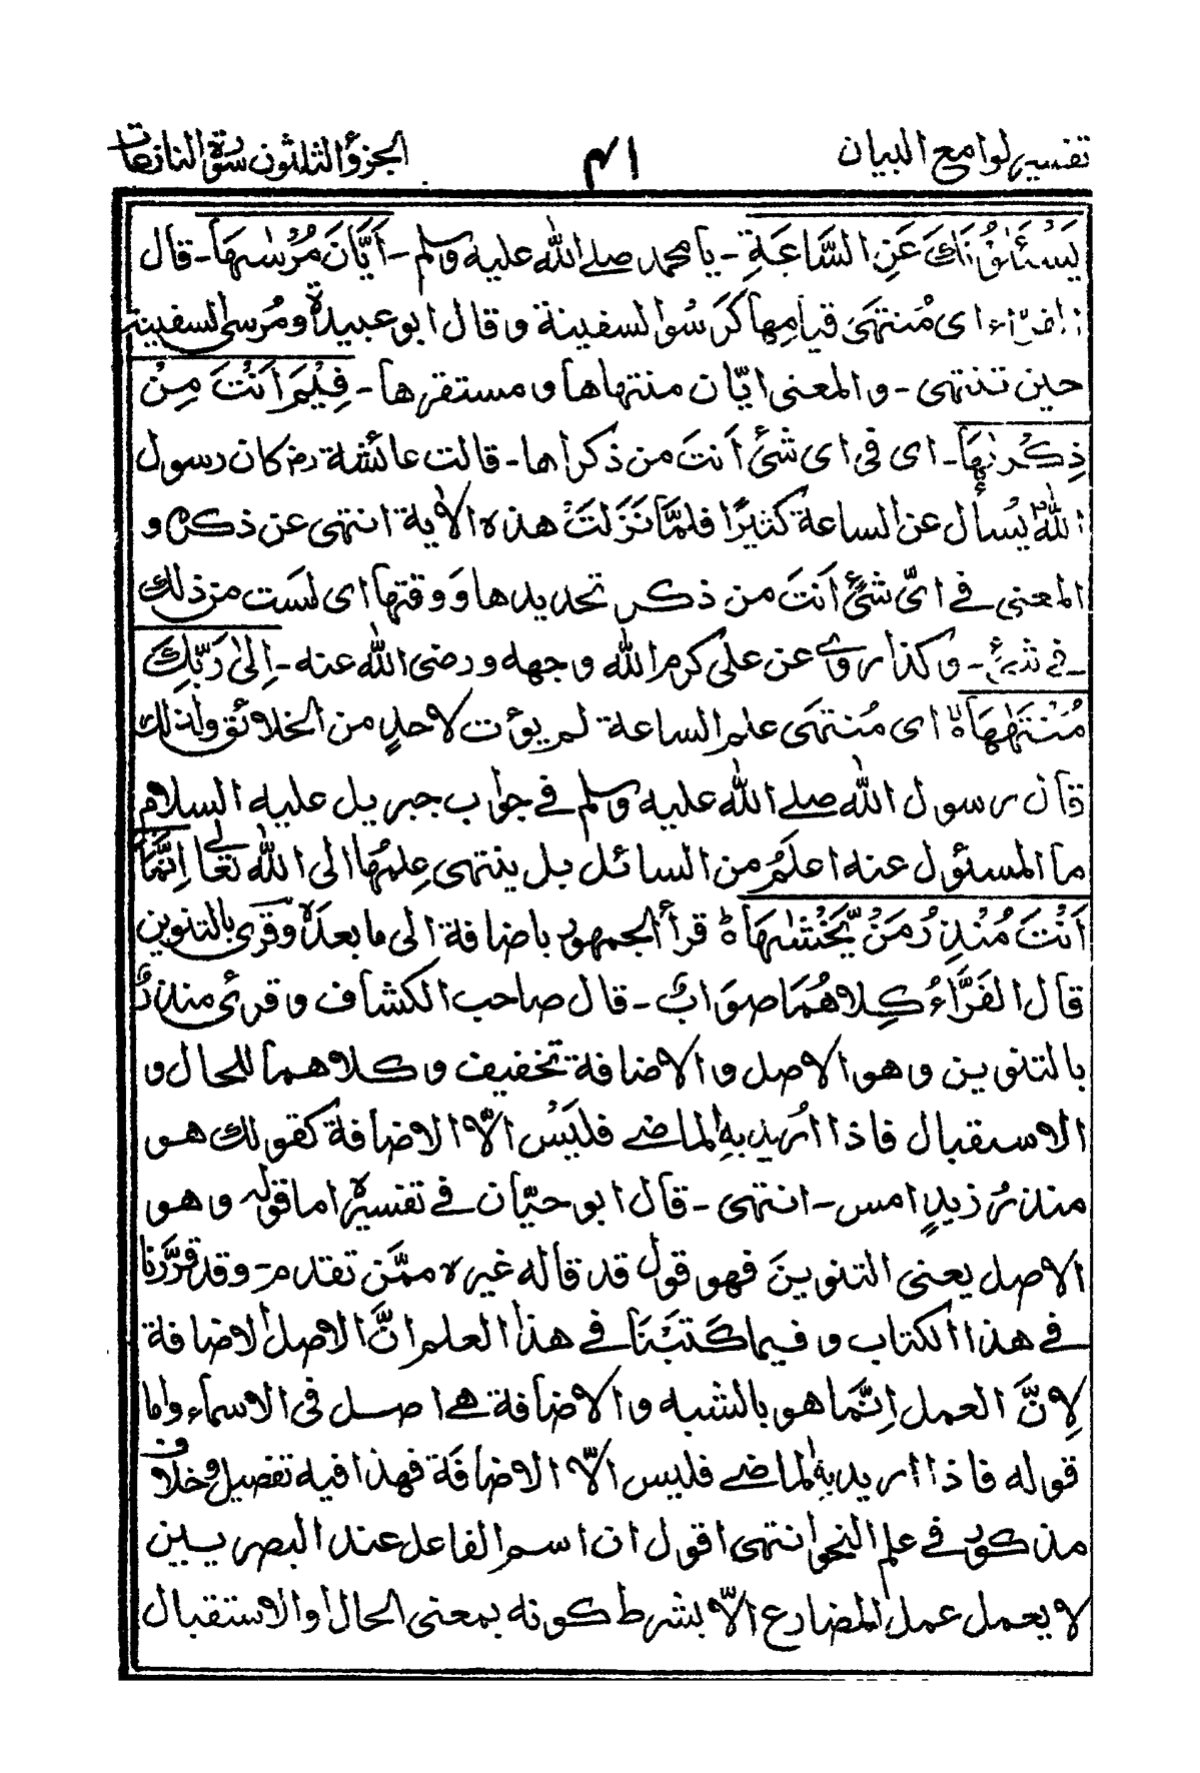 تفسير لوامع البيان ٤١ الجزؤ الثلثون سورة النازعات
يَسْـَٔلُوْنَكَ عَنِ السَّاعَةِ - يا محمد صلے الله عليه وسلم - اَيَّانَ مُرْسٰىهَا - قال
الفرّاء اى مُنتهىَ قيامِها كَرَسُو السفينة و قال ابو عبيدة و مُرسى السفينة
حين تنتهى - و المعنى ايّان منتهاها و مستقرها - فِيْمَ اَنْتَ مِنْ
ذِكْرٰىهَا - اى فى اى شئ اَنتَ من ذكراها - قالت عائشة رض كان رسول
اللهؐ يسأل عن الساعة كثيرًا فلمَّا نَزَلتَْ هذه الاٰية انتهى عن ذكره و
المعنى فے ایّ شئٍ اَنتَ من ذكر تحديدها وَ وقتها اى لسَت من ذلك
فے شئ - و كذا روے عن على كرم الله وجهه و رضى الله عنه - اِلىٰ رَبِّكَ
مُنْتَهٰهَاۤ اى مُنتهىَ علم الساعة لم يؤت لاحدٍ من الخلائق و لذلك
قال رسول الله صلے الله عليه وسلم فے جواب جبريل عليه السلام
ما المسئول عنه اعلمُ من السائل بل ينتهى عِلمُها الى الله تعالے اِنَّمَاۤ
اَنْتَ مُنْذِرُ مَنْ يَّخْشٰىهَا ؕ قرأ الجمهور باضافة الى ما بعده و قرى بالتنوين
قال الفَرَّاءُ كِلاهُمَا صوَابٌ - قال صاحب الكشاف و قرئ منذرٌ
بالتنوين و هو الاصل و الاضافة تخفيف و كلاهما للحال و
الاستقبال فاذا اُريد بهِ الماضے فليَسْ الّا الاضافة كقولك هو
منذرُ زيدٍ امس - انتهى - قال ابو حيّان فے تفسيره اما قوله و هو
الاصل يعنى التنوينَ فهو قول قد قاله غيره ممَّن تقدم - و قد قرَّرنا
فے هذا الكتاب و فيما كَتَبْنَا فے هذا العلم انَّ الاصل الاضافة
لِانَّ العمل اِنَّما هو بالشبه و الاضافة هے اصل فى الاسماء و اما
قوله فاذا اريد به الماضے فليس الّا الاضافَة فهذا فيه تفصيل و خلاف
مذكور فے علم النحو انتهى اقول ان اسم الفاعل عند البصريين
لا يعمل عمل المضارع الّا بشرط كونه بمعنى الحال او الاستقبال